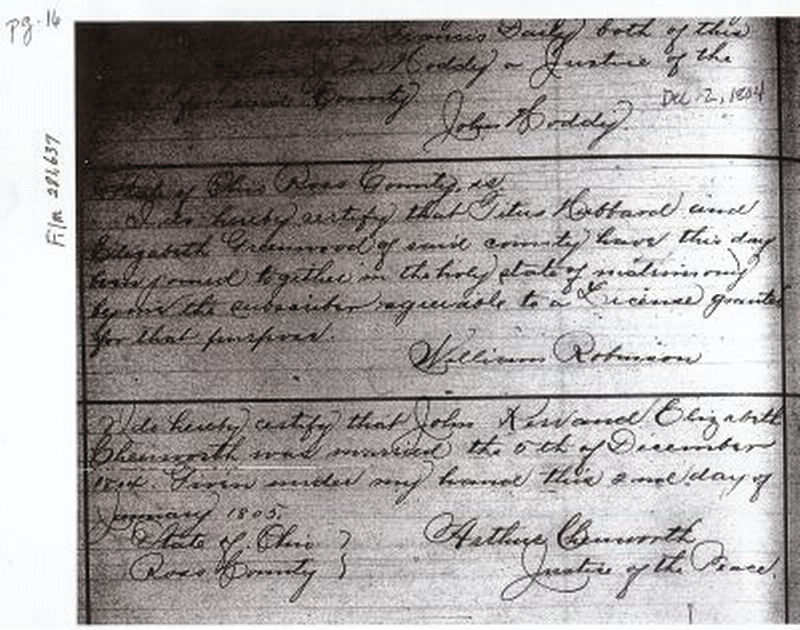 pg. 16
Film 281637
and Francis Daily both of this
John Hoddy a Justice of the
for said County
Dec 2, 1804
John Hoddy
State of Ohio Ross County, ss.
I do hereby certify that Titus Hubbard and
Elizabeth Greenwood of said county have this day
been joined together in the holy state of matrimony
before the subscriber agreeable to a License granted
for that purpose.
William Robinson
I do hereby certify that John Kerr and Elizabeth
Chenworth was married the 5th of December
1804. Given under my hand this 2nd day of
January 1805.
State of Ohio }
Ross County }
Arthur Chenworth
Justice of the Peace.